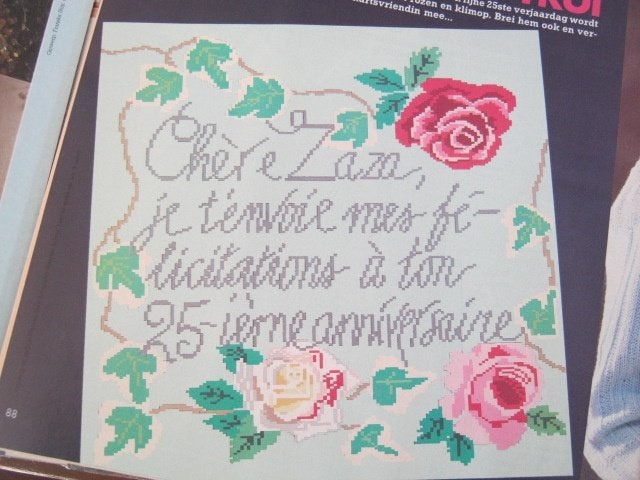 ijne 25ste verjaardag wordt
rozen en klimop. Brei hem ook en ver-
hartsvriendin mee...
Chère Zaza,
je t'envoie mes fé-
licitations à ton
25-ième anniversaire
88